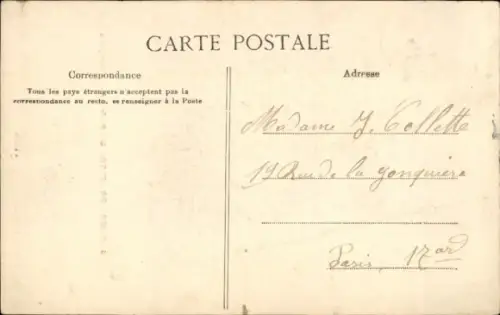 CARTE POSTALE
Correspondance
Tous les pays étrangers n'acceptent pas la
correspondance au recto, se renseigner à la Poste
Adresse
Madame J. Collette
19 Rue de la Jonquière
Paris, 17 ard